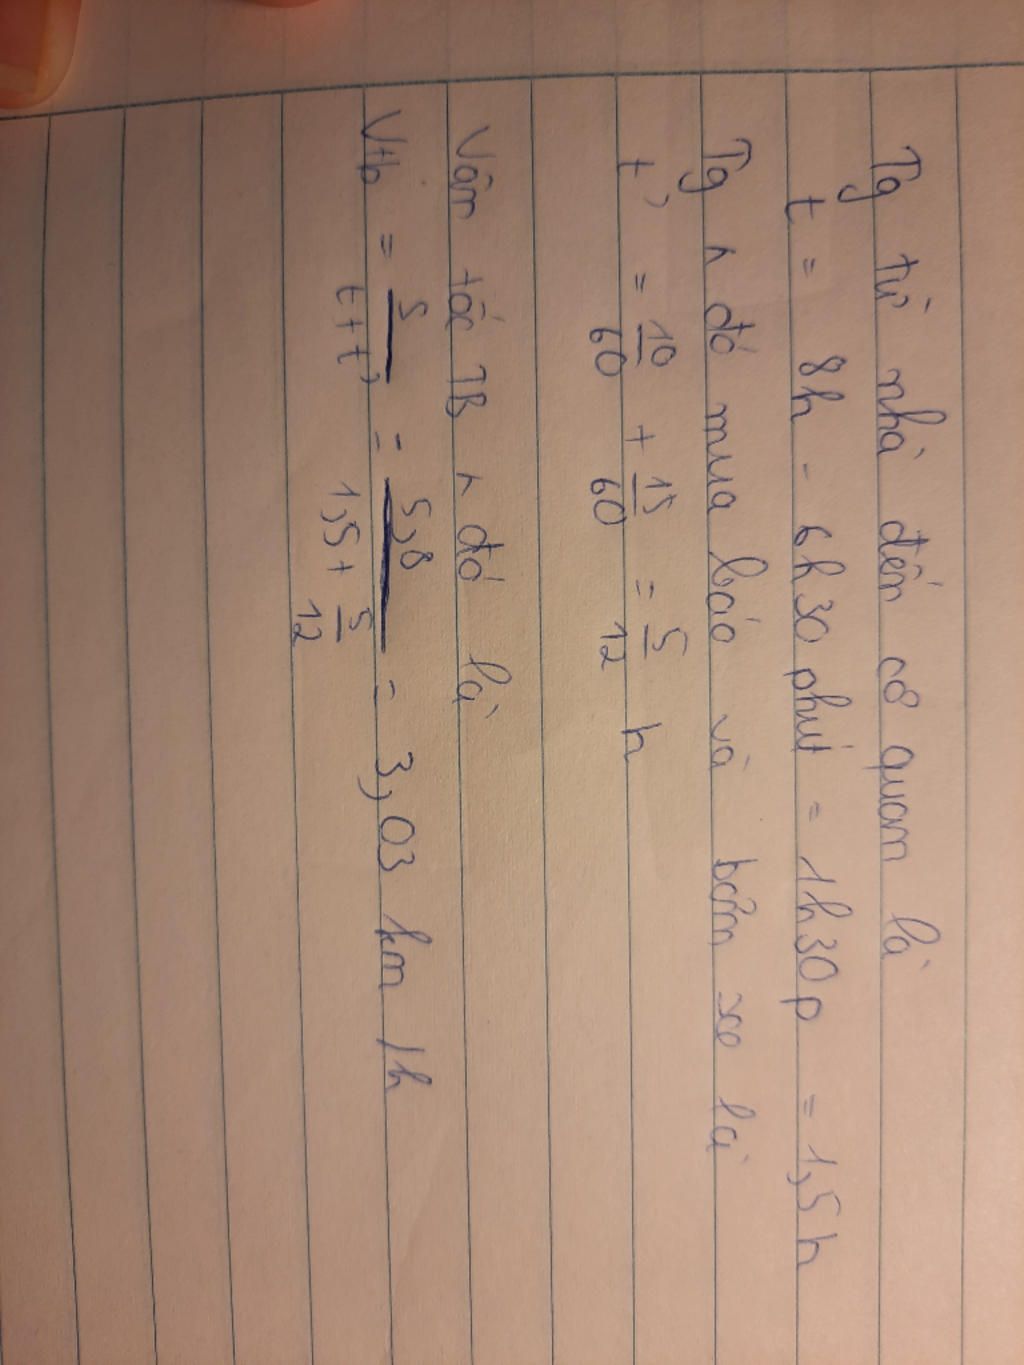 Tg từ nhà đến cơ quan là
t = 8h - 6h30 phút = 1h30p = 1,5h
Tg n đó mua báo và bơm xe là
t' = 10/60 + 15/60 = 5/12 h
Vận tốc TB n đó là
Vtb = S/t+t' = 5,8/1,5+5/12 = 3,03 km/h